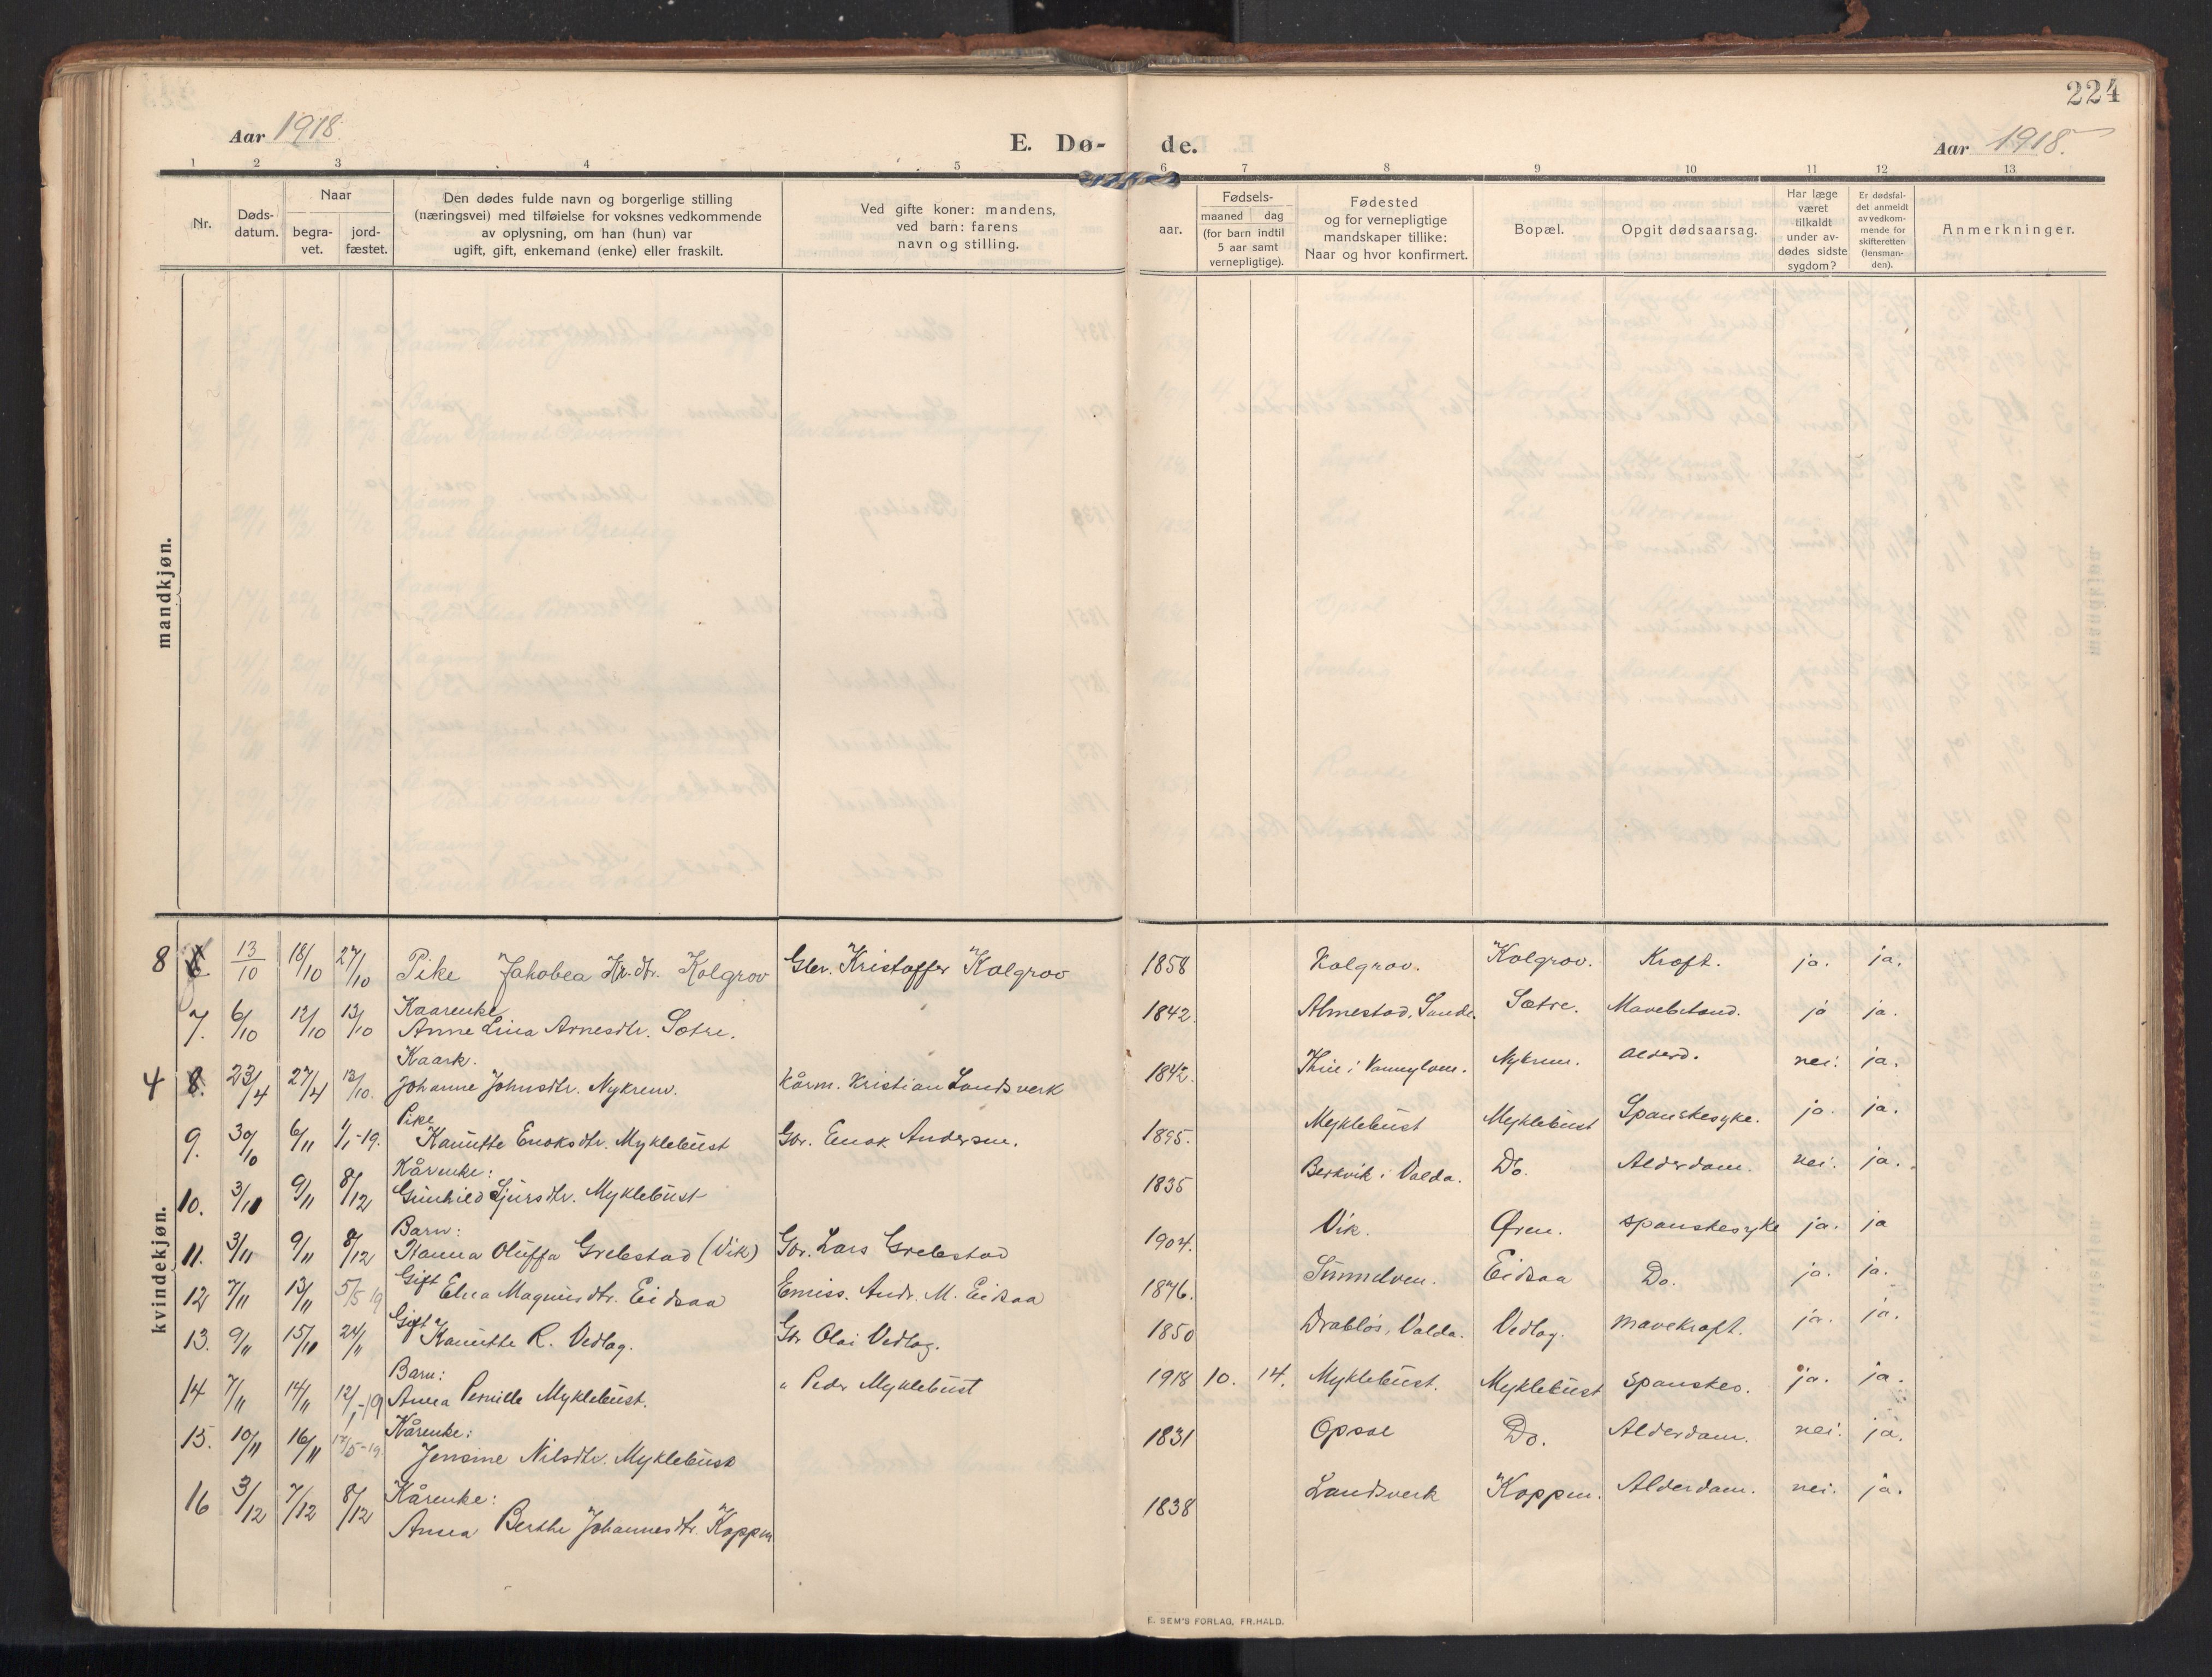 224
Aar 1918.
E. Dø-
de.
Aar 1918.
1 2 3 4 5 6 7 8 9 10 11 12 13
Nr.
Døds-
datum.
Naar
begra-
vet.
jord-
fæstet.
Den dødes fulde navn og borgerlige stilling
(næringsvei) med tilføielse for voksnes vedkommende
av oplysning, om han (hun) var
ugift, gift, enkemand (enke) eller fraskilt.
Ved gifte koner: mandens,
ved barn: farens
navn og stilling.
aar.
Fødsels-
maaned dag
(for barn indtil
5 aar samt
vernepligtige).
Fødested
og for vernepligtige
mandskaper tillike:
Naar og hvor konfirmert.
Bopæl.
Opgit dødsaarsag.
Har læge
været
tilkaldt
under av-
dødes sidste
sygdom?
Er dødsfal-
det anmeldt
av vedkom-
mende for
skifteretten
(lensman-
den).
Anmerkninger.
mandkjøn.
kvindekjøn.
8 6 13/10 18/10 27/10 Pike Jakobea Kr.dtr. Kolgrov Gbr. Kristoffer Kolgrov 1858 Kolgrov. Kolgrov. Kræft. ja. ja.
Kaarenke
7. 6/10 12/10 13/10 Anne Lina Arnesdtr. Sætre. 1842. Almestad, Sande. Sætre. Mavebetænd. ja ja.
Kaark.
4 8. 23/4 27/4 13/10. Johanne Johnsdtr. Nykrem. Kårm. Kristian Landsverk 1842. i Vannylven. Nykrem. Alderd. nei. ja.
Pike
9. 30/10 6/11 1/1-19. Kanutte Enoksdtr. Myklebust Gbr. Enok Andersen. 1895. Myklebust Myklebust Spanskesyke. ja. ja.
Kårenke:
10. 3/11 9/11 8/12 Gunhild Sjursdtr. Myklebust 1835 Berkvik i Volda. Do. Alderdom. nei. ja.
Barn:
11. 3/11 9/11 8/12 Hanna Oluffa Grebstad (Vik) Gbr. Lars Grebstad 1904. Vik. Øren. Spanskesyke ja. ja
12 7/11 13/11 5/5 19 Gift Elna Magnusdtr. Eidsaa Emiss. Andr. M. Eidsaa 1876. Sunnelven. Eidsaa Do. ja. ja.
Gift
13. 9/11 15/11 24/11 Kanutte R. Vedlog. Gbr Olai Vedlog. 1850 Drabløs, Volda. Vedlog. Mavekræft. ja. ja.
Barn:
14 7/11 14/11 12/1-19 Anna Pernille Myklebust. " Peder Myklebust 1918 10. 14. Myklebust. Myklebust Spanskes. ja. ja.
Kårenke:
15. 10/11 16/11 17/5-19. Jensine Nilsdtr. Myklebust 1831 Opsal Do. Alderdom. nei. ja.
Kårenke:
16 3/12 7/12 8/12 Anna Berthe Johannesdtr. Koppen 1838 Landsverk Koppen. Alderdom. nei. ja.
E. SEM'S FORLAG, FR.HALD.